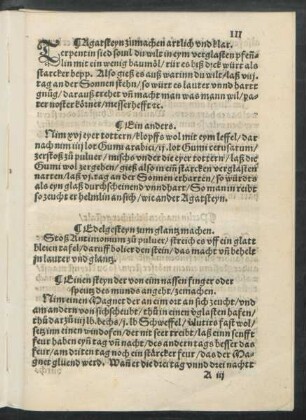 III
¶Agatsteyn zůmachen artlich vnd klar.
Terpentin sied souil du wilt in eym verglasten pfeñ-
lin mit ein wenig baumöl/ rür es biß dick würt als
starcker hepp. Also gieß es auß warinn du wilt/ laß viij.
tag an der Sonnen stehn/ so würt es lauter vnnd hartt
gnůg/ darauß treßet vñ macht man was mann wil/ pa-
ter noster körner/ messerhefft ꝛc.
¶Ein anders.
Nim xvj eyer tottern/ klopffs wol mit eym leffel/ dar
nach nim iiij lot Gumi arabici/ ij. lot Gumi cerusarum/
zerstoß zů puluer/ mischs vnder die eyer tottern/ laß die
Gumi wol zergehen/ gieß als in ein starcken verglasten
narren/ laß vj. tag an der Sonnen erharten/ so würdts
als eym glaß durchscheinend vnnd hart/ So man in reibt
so zeucht er helmlin an sich/ wie ander Agatsteyn.
¶Edelgesteyn zum glantz machen.
Stoß Antimonium zů puluer/ streich es vff ein glatt
bleien tafel/ daruff bolier den stein/ das macht vñ behelt
jn lauter vnd glantz.
¶Einen steyn der von eim nassen finger oder
speitz des munds angehet/ zemachen.
Nim einen Magnet der an eim ort an sich zeucht/ vnd
am andern von sich scheubt/ thů in einen vglasten hafen/
thů darzů iiij lb. bechs/ j. lb Schweffel/ Lutirs fast wol/
setz im einen windofen/ der mit seer treibt/ laß ein senfft
feur haben eyn tag vñ nacht/ des andern tags besser das
feur/ am dritten tag noch ein stärcker feur/ das der Ma-
gnet glüend werd. Wañ er die drei tag vnnd drei nachtt
A iij